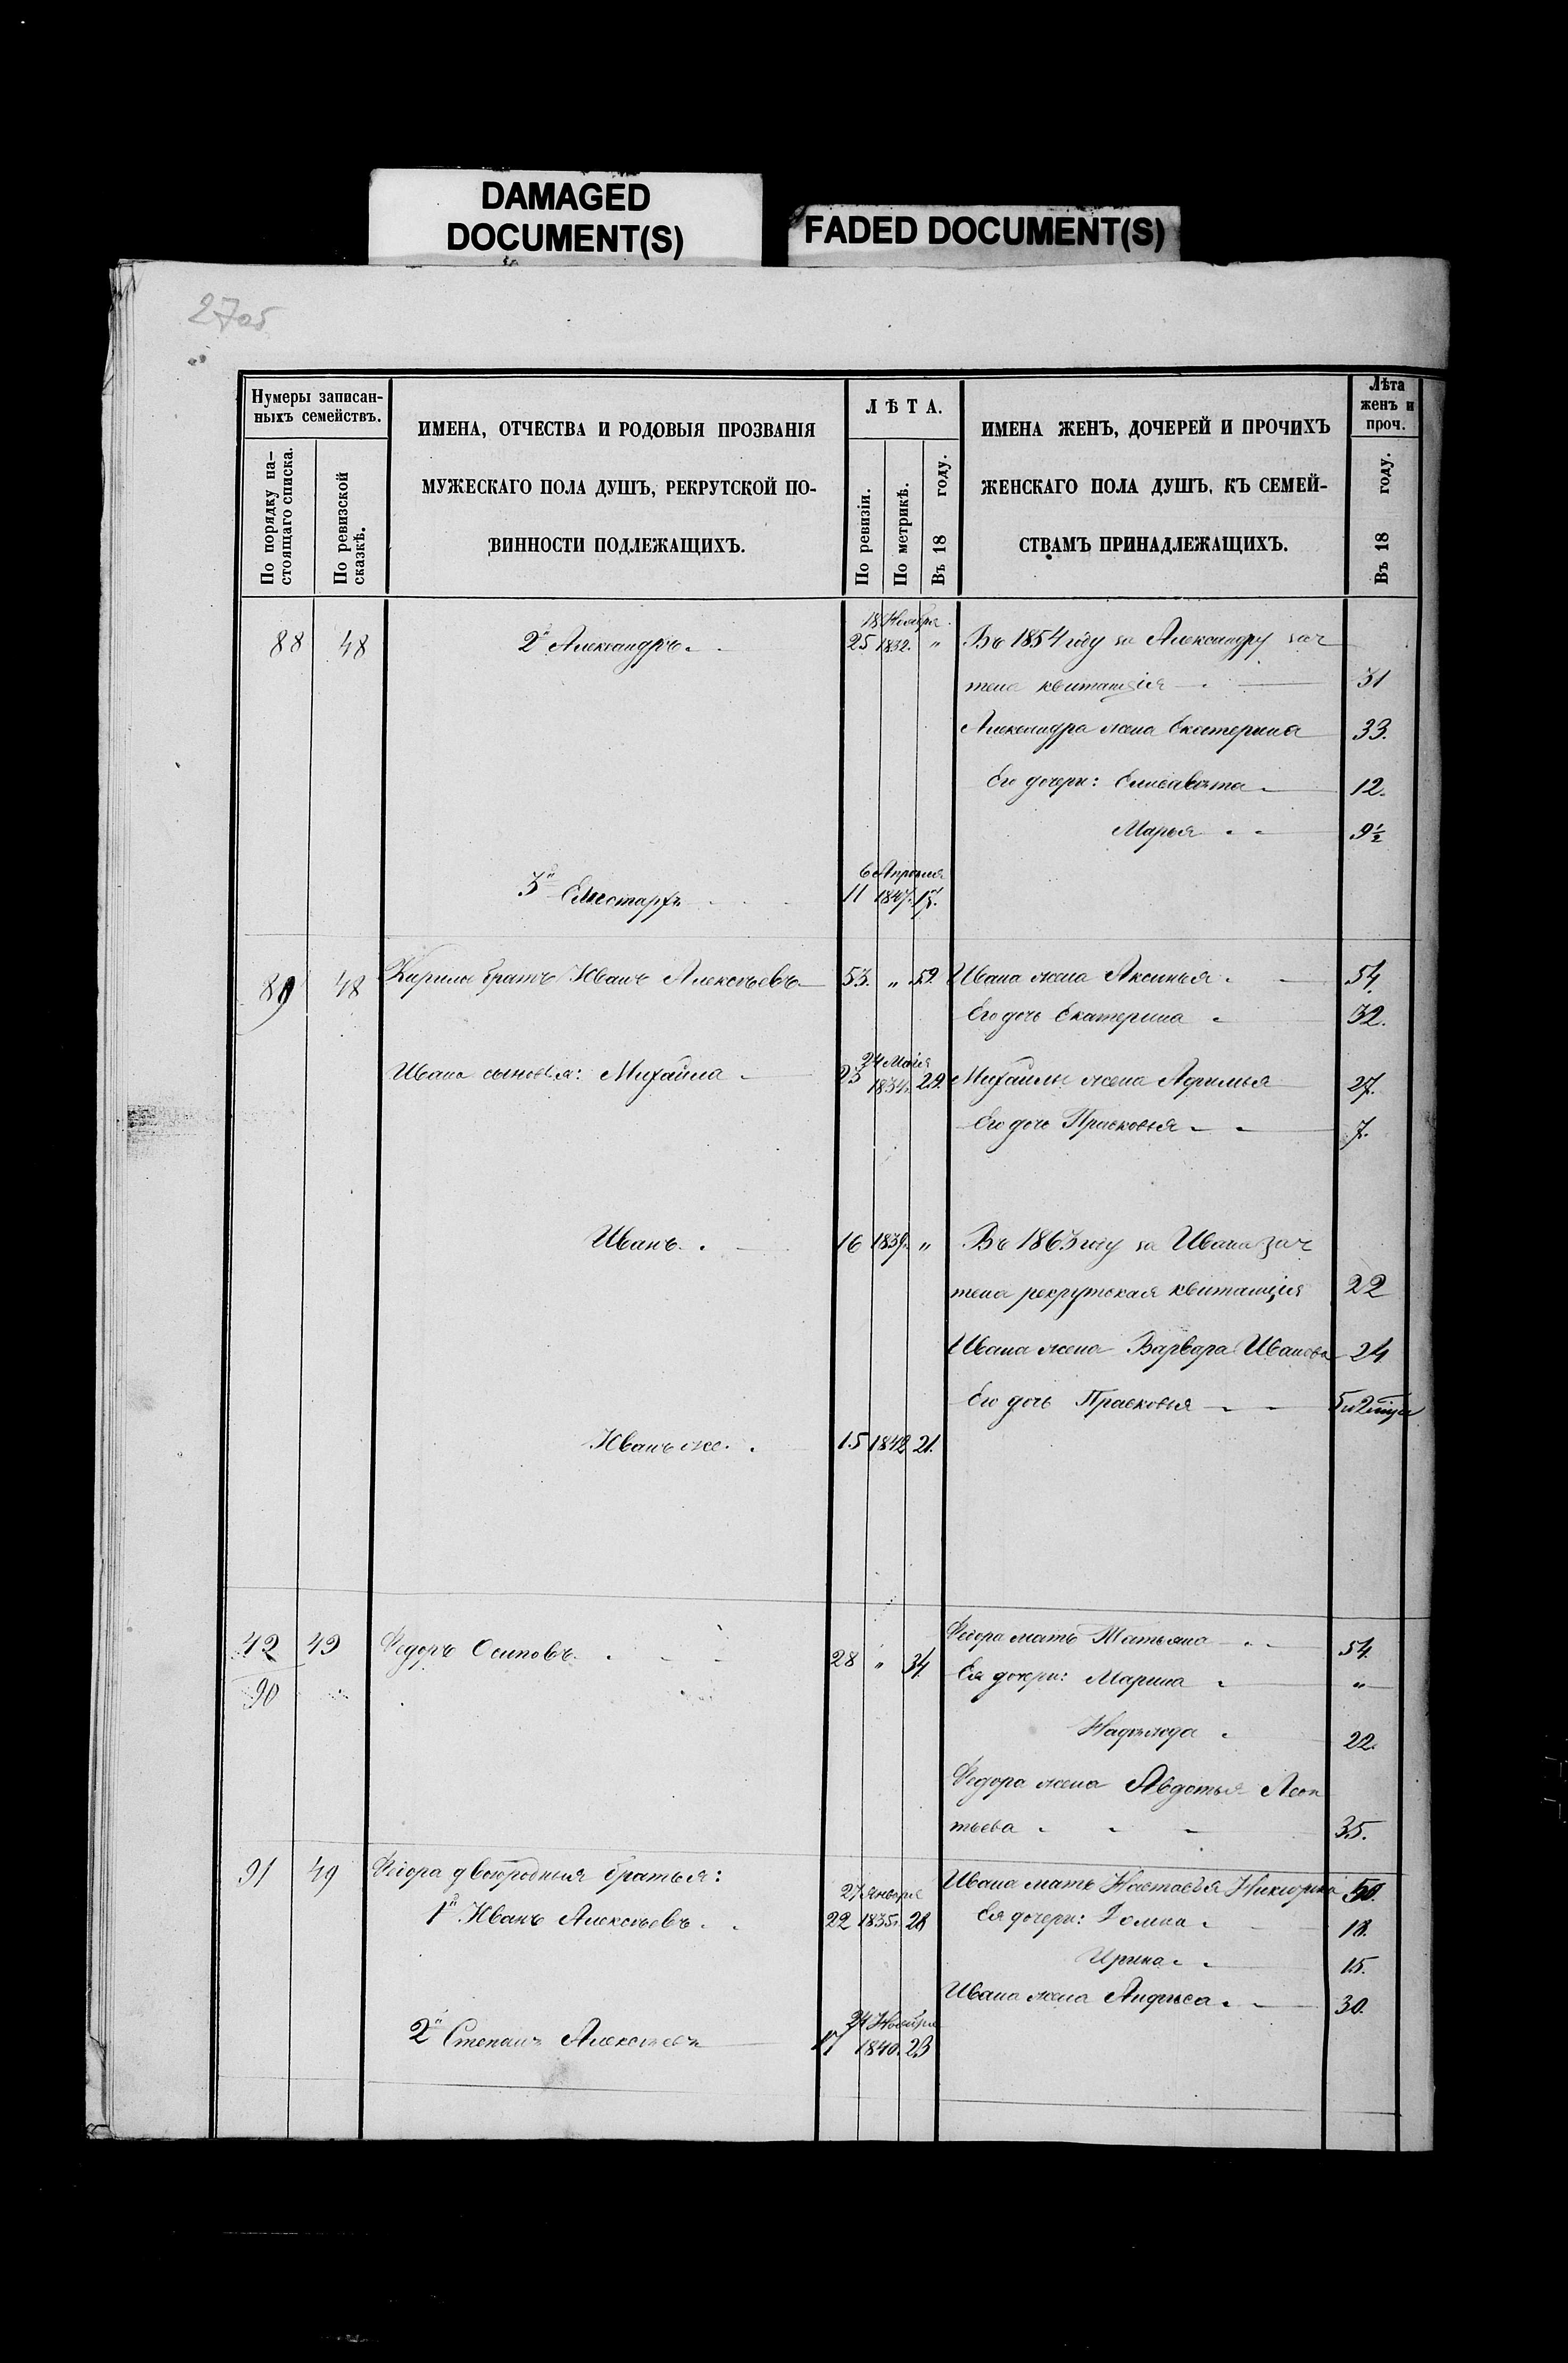 DAMAGED
DOCUMENT(S)
FADED DOCUMENT(S)
2705
Нумеры записан-
ныхъ семействъ.
По порядку на-
стоящаго списка.
По ревизской
сказкѣ.
ИМЕНА, ОТЧЕСТВА И РОДОВЫЯ ПРОЗВАНІЯ
МУЖЕСКАГО ПОЛА ДУШЪ, РЕКРУТСКОЙ ПО-
ВИННОСТИ ПОДЛЕЖАЩИХЪ.
ЛѢТА.
По ревизіи.
По метрикѣ.
Въ 18 году.
ИМЕНА ЖЕНЪ, ДОЧЕРЕЙ И ПРОЧИХЪ
ЖЕНСКАГО ПОЛА ДУШЪ, КЪ СЕМЕЙ-
СТВАМЪ ПРИНАДЛЕЖАЩИХЪ.
Лѣта
женъ и
проч.
Въ 18 году.
18 Ноября
88 48 2й Александръ. 25 1832. " Въ 1854 году за Александру зач
тена квитанція 31
Александра жена Екатерина 33.
Его дочери: Елисавѣта 12.
Марья 9½
6 Апрѣля
3й 11 1847. 17.
89 48 Кирила братъ Иванъ Алексѣевъ 53. " 59. Ивана жена Аксинья 54.
Его дочь Екатерина 32.
24 Маія
Ивана сыновья: Михайла 23 1834. 29. Михайлы жена Афимья 27.
Его дочь Прасковья 7.
Иванъ. 16 1839. " Въ 1863 году за Ивана зач
тена рекрутская квитанція 22
Ивана жена Варвара Иванова 24
Его дочь Прасковья
Иванъ же. 15 1842 21.
42 49 Федоръ Осиповъ. 28 " 34. Федора мать Татьяна 54.
90 Ея дочери: Марина "
Надежда 22.
Федора жена Авдотья Леон
тьева 35.
91 49 Федора двоюродныя братья:
27 Января
Ивана мать Настасья 50.
1й Иванъ Алексѣевъ. 22 1835. 28 Ея дочери: 18.
Ирина 15.
Ивана жена Анфиса 30.
24 Ноября
2й Степанъ Алексѣевъ 17 1840. 23